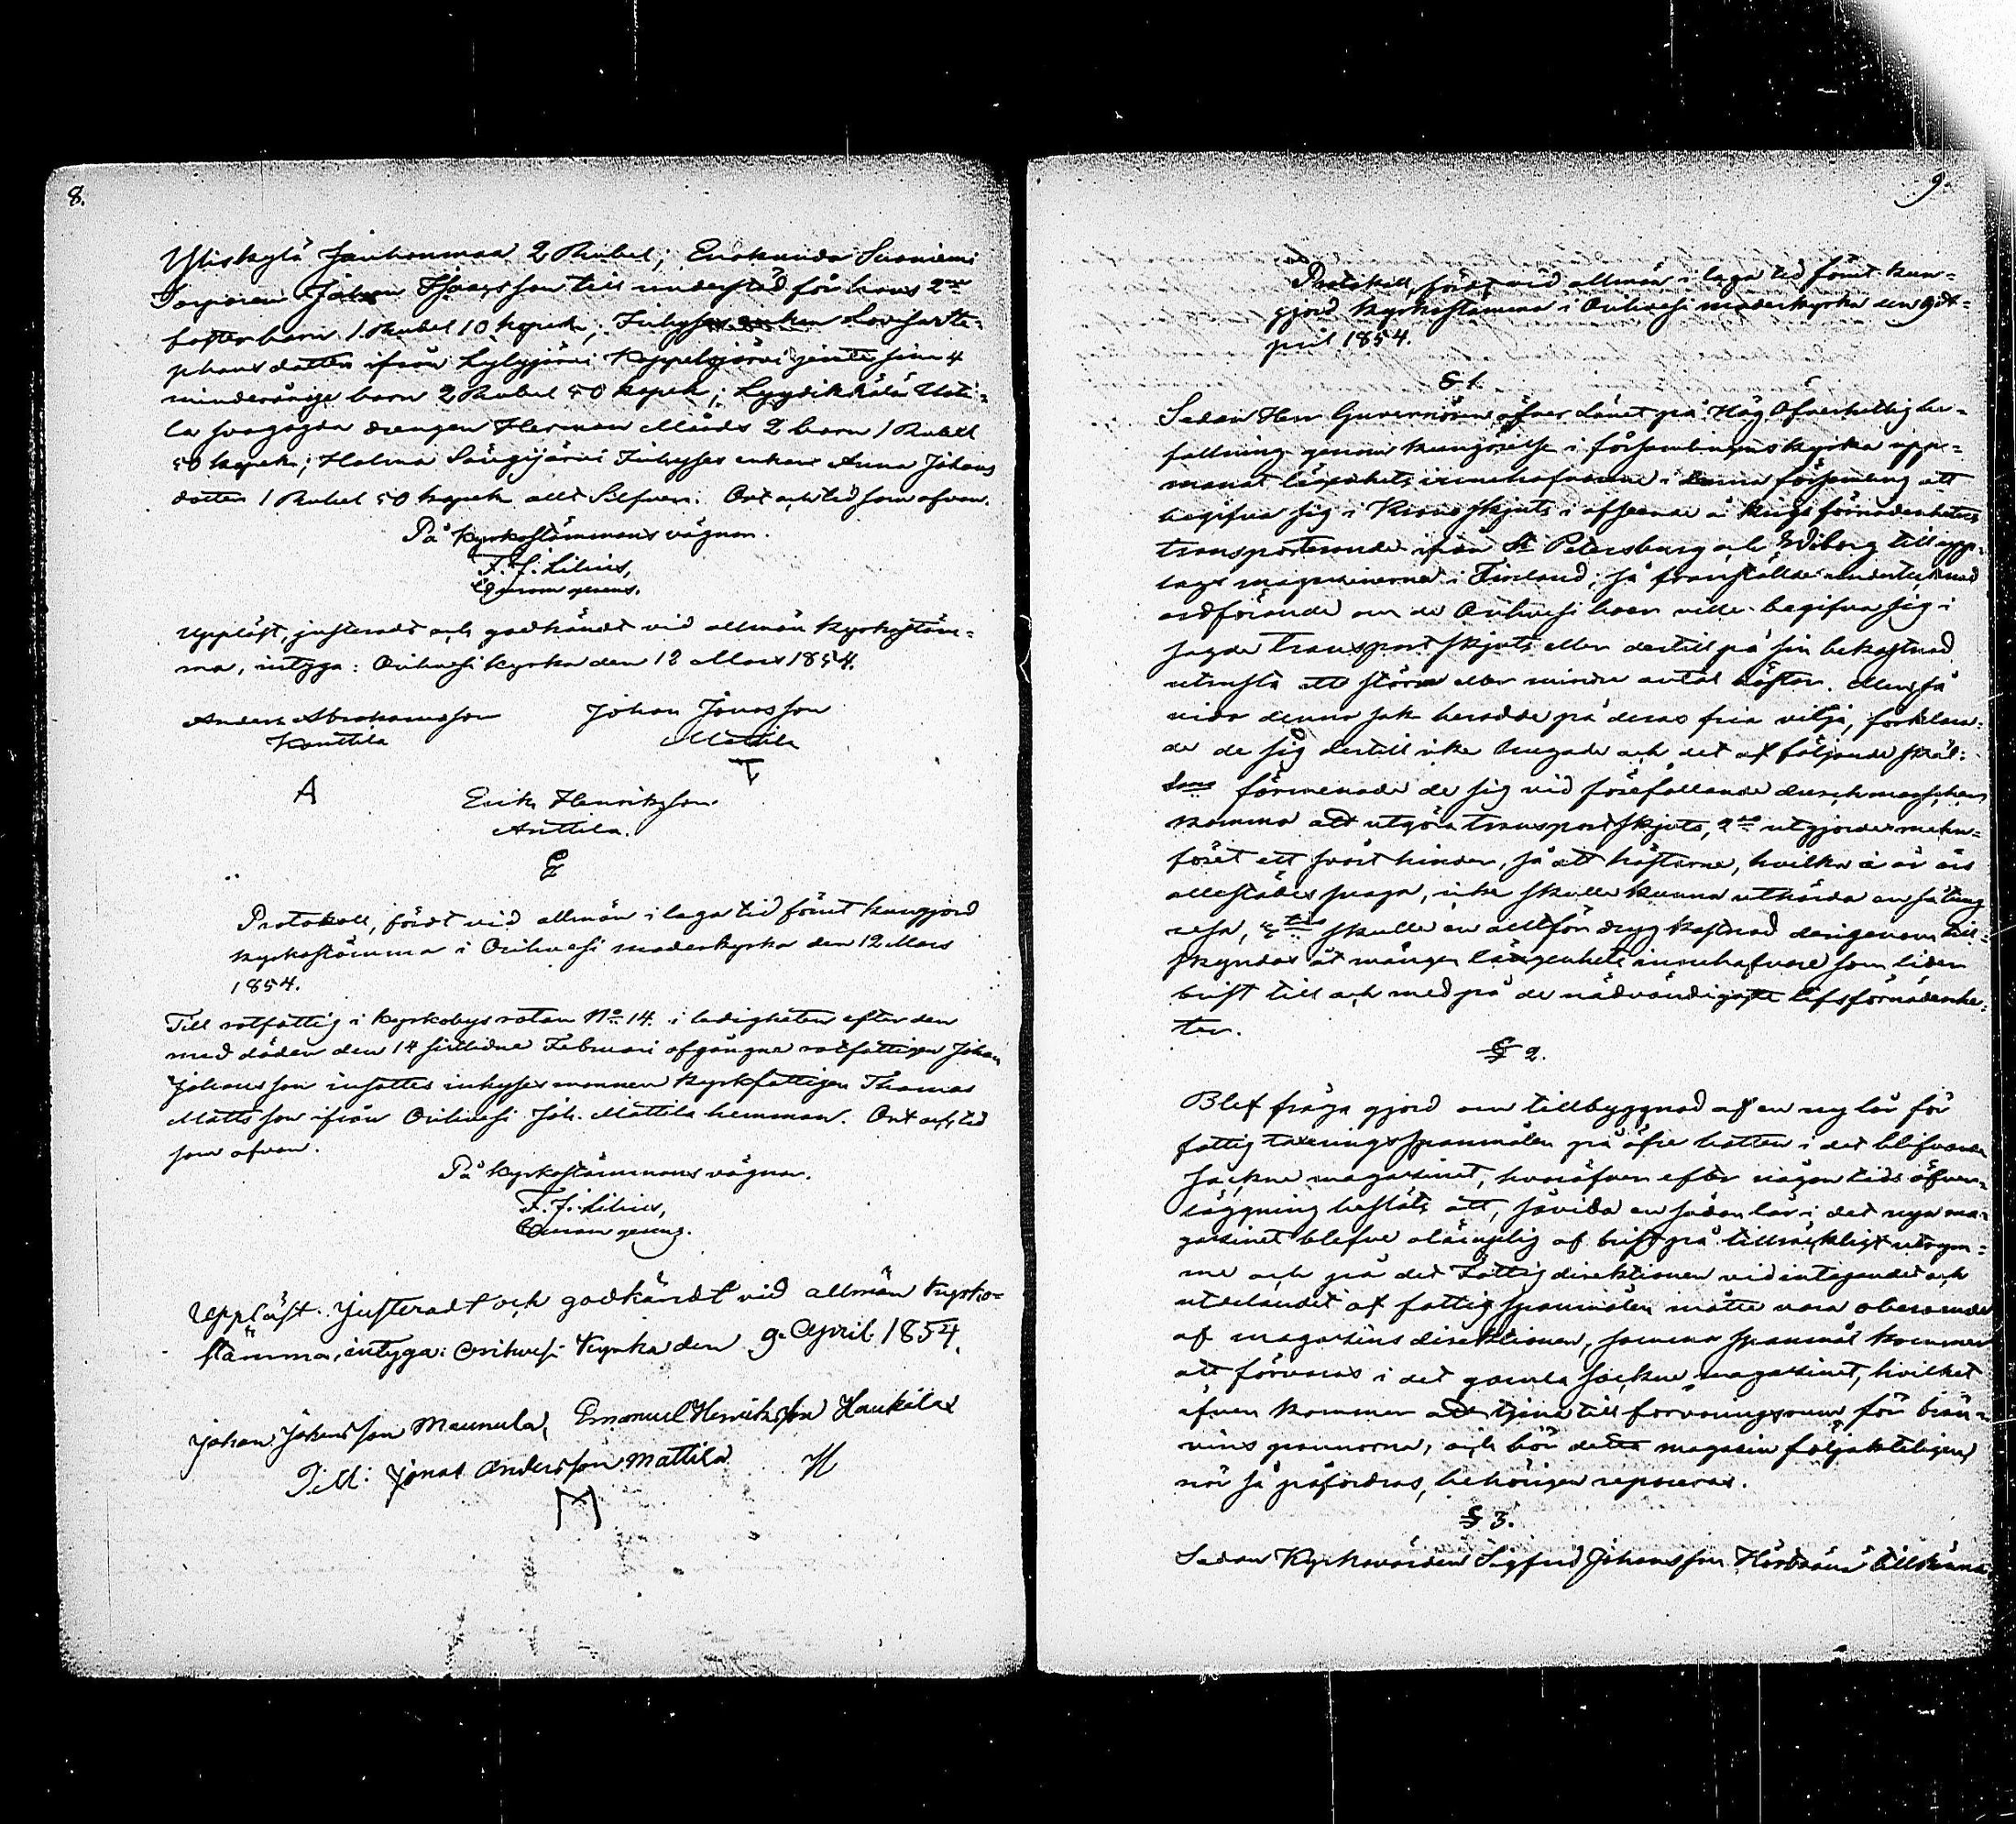 8.
Yliskylä Jauhonmaa 2 Rubel; Enokunda Suoniemi
Torparen Johan Isaacsson till understöd för hans 2ne
fosterbarn 1 Rubel 10 kopek; Inhyses enkan Lovisa Ste-
phansdotter ifrån Lylyjärvi Koppelojärvi jemte sina 4
minderårige barn 2 Rubel 50 kopek; Lyydikkälä Uoti-
la drengen Herman Matts 2 barn 1 Rubel
50 kopek; Holma Särgijärvi Inhyses enkan Anna Johans
dotter 1 Rubel 50 kopek allt Silfver. Ort och tid som ofvan.
På Kyrkostämmans vägnar.
F. J. Lilius,
Curam gerens.
Uppläst, justeradt och godkändt vid allmän Kyrkostäm-
ma, intyga: Orihvesi kyrka den 12 Mars 1854.
Anders Abrahamsson Johan Jonasson
Konttila Mattila
A T
Erik Henriksson
Anttila.
E
Protokoll, fördt vid allmän i laga tid förut kungjord
kyrkostämma i Orihvesi moderkyrka den 12 Mars
1854.
Till rotfattig i Kyrkobys rotan No 14. i ledigheten efter den
med döden den 14 sistlidne Februari afgångne rotfattigen Johan
Johansson insattes inhyses mannen kyrkfattigen Thomas
Mattsson ifrån Orihvesi Joh. Mattila hemman. Ort och tid
som ofvan.
På Kyrkostämmans vägnar.
F. J. Lilius,
Curam gerens.
Uppläst. Justeradt och godkändt vid allmän Kyrko-
stämma, intyga: Orihvesi Kyrka den 9. April 1854.
Johan Johansson Maunula, Emanuel Henriksson Haukila
Till: Jonas Andersson Mattila H
M
9.
Protokoll, fördt vid allmän i laga tid förut kun-
gjord Kyrkostämma i Orihvesi moderkyrka den 9 A-
pril 1854.
§ 1.
Sedan Herr Guvernören öfver Länet på Hög Öfverhetlig be-
fallning genom kungörelse i församlingens kyrka upp-
manat lägenhets innehafvarne i denna församling att
begifva sig i Kronoskjuts i afseende å krigsförnödenheters
transporterande ifrån St Petersburg och Wiborg till upp-
lags magasinerne i Finland; så framställde undertecknad
ordförande om de Orihvesi boer ville begifva sig i
sagde transport skjuts eller dertill på sin bekostnad
utrusta ett större eller mindre antal hästar. Men så
vida denna sak berodde på deras fria vilja, förklara-
de de sig dertill icke hugade och det af följande skäl:
1mo förmenade de sig vid förefallande durchmarscher
komma att utgöra transportskjuts, 2do utgjorde mehn-
föret ett svårt hinder, så att hästarne, hvilka i år äro
allestädes svaga, icke skulle kunna uthärda en så lång
resa, 3tio skulle en alltför dryg kostnad derigenom till-
skyndas åt mången lägenhets innehafvare som lider
brist till och med på de nödvändigaste lifsförnödenhe-
ter.
§ 2.
Blef fråga gjord om tillbyggnad af en ny lår för
fattig taxerings spannmålen på öfre botten i det blifvande
sockne magasinet, hvaröfver efter någon tids öfver-
läggning beslöts att, såvida en sådan lår i det nya ma-
gasinet blefve olämplig af brist på tillräckligt utrym-
me och på det Fattigdirektionen vid intagandet och
utdelandet af fattig spannmålen måtte vara oberoende
af magasins direktionen, samma spannmål kommer
att förvaras i det gamla sockne magasinet, hvilket
äfven kommer att tjena till förvaringsrum för brän-
vins pannorna, och bör detta magasin följaktligen,
når så påfordras, behörigen repareras.
§ 3.
Sedan Kyrkovärden Sigfrid Johansson tillkänna